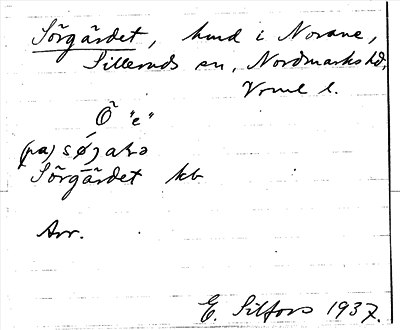 Sörgärdet, hmd i Norane,
Silleruds sn, Nordmarks hd,
Vrml l.
Ö "e"
(pa)
Sörgärdet kb
Arr.
E. Silfors 1937.